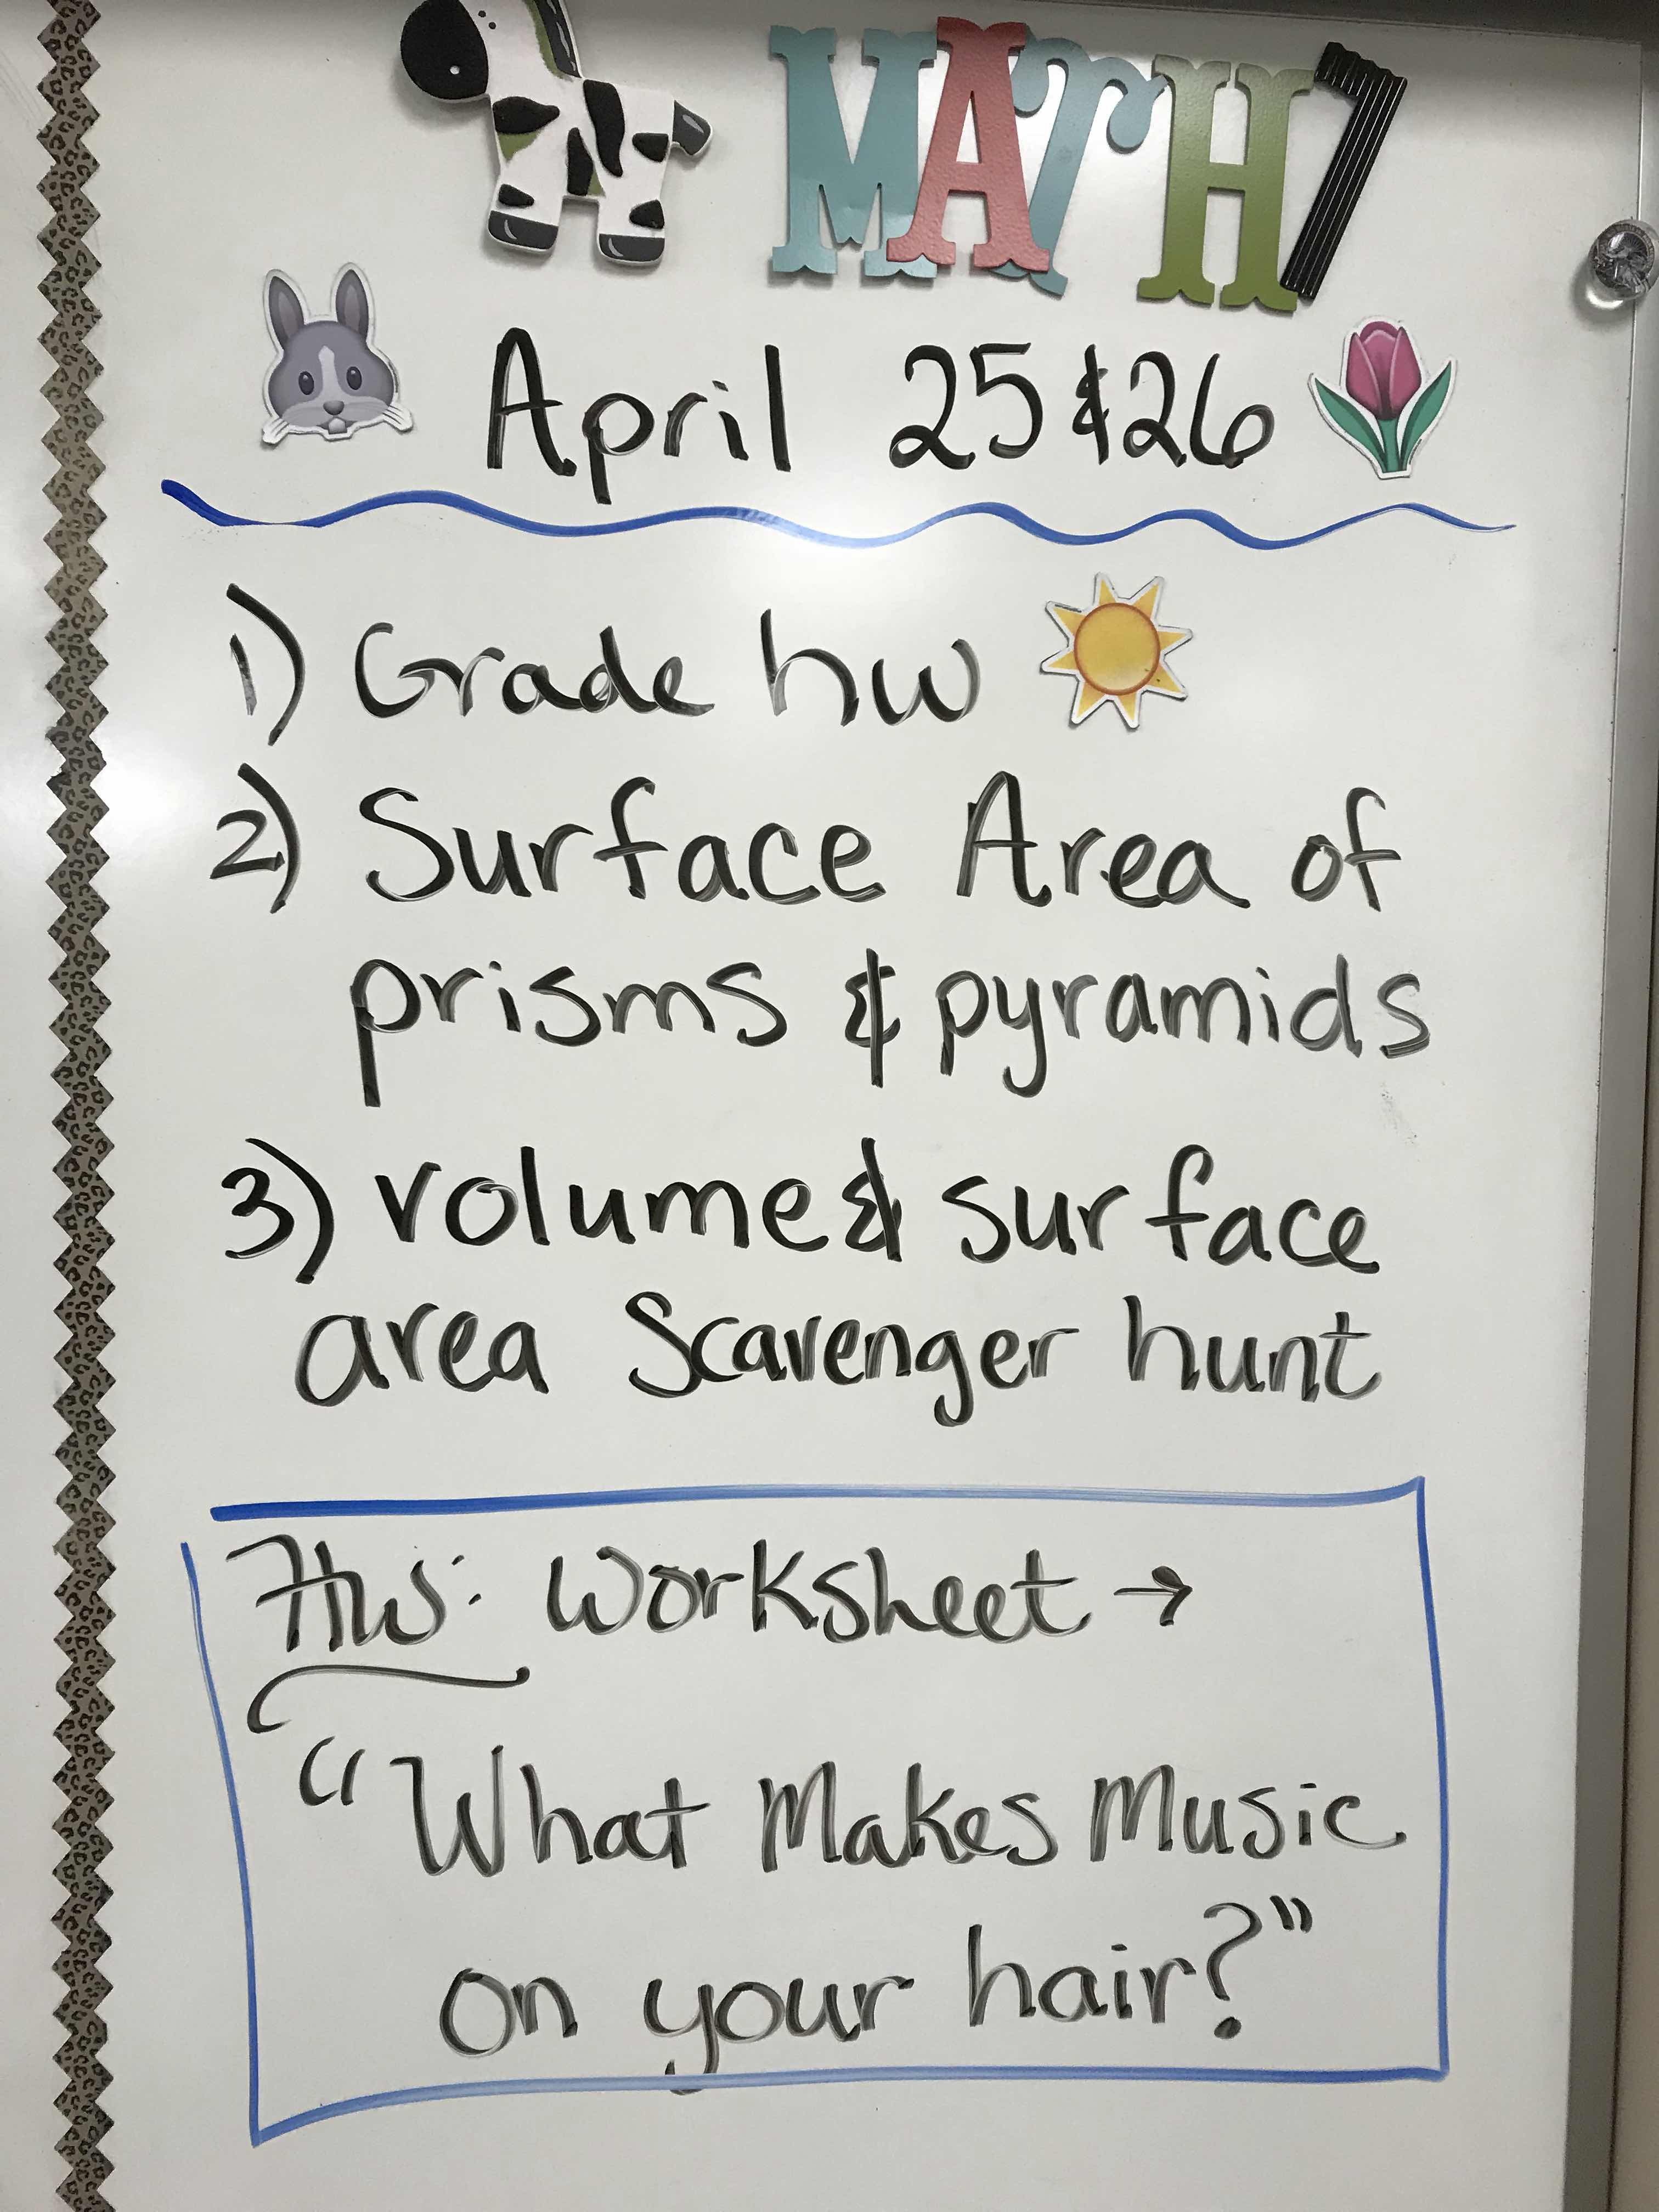 MATH 7
April 25 & 26
1) Grade hw
2) Surface Area of
prisms & pyramids
3) volume & surface
area Scavenger hunt
HW: Worksheet →
"What Makes Music
on your hair?"